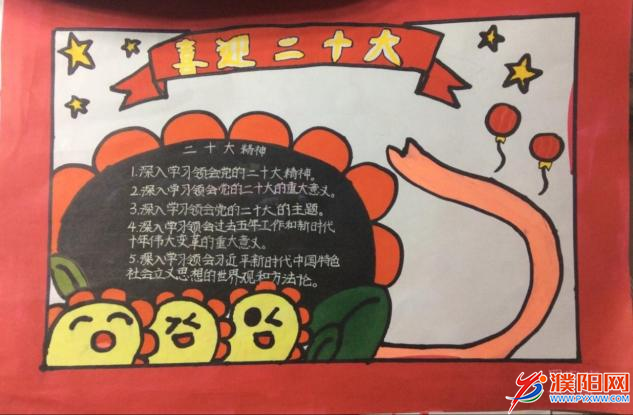 喜迎二十大
二十大精神
1.深入学习领会党的二十大精神。
2.深入学习领会党的二十大的重大意义。
3.深入学习领会党的二十大的主题。
4.深入学习领会过去五年工作和新时代
十年伟大变革的重大意义。
5.深入学习领会习近平新时代中国特色
社会主义思想的世界观和方法论。
濮阳网
WWW.PYXWW.COM